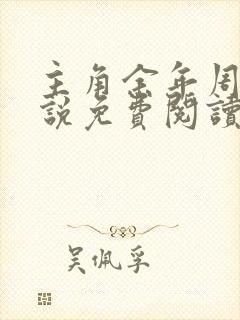 主角金年周
說免費閱讀
吴佩孚